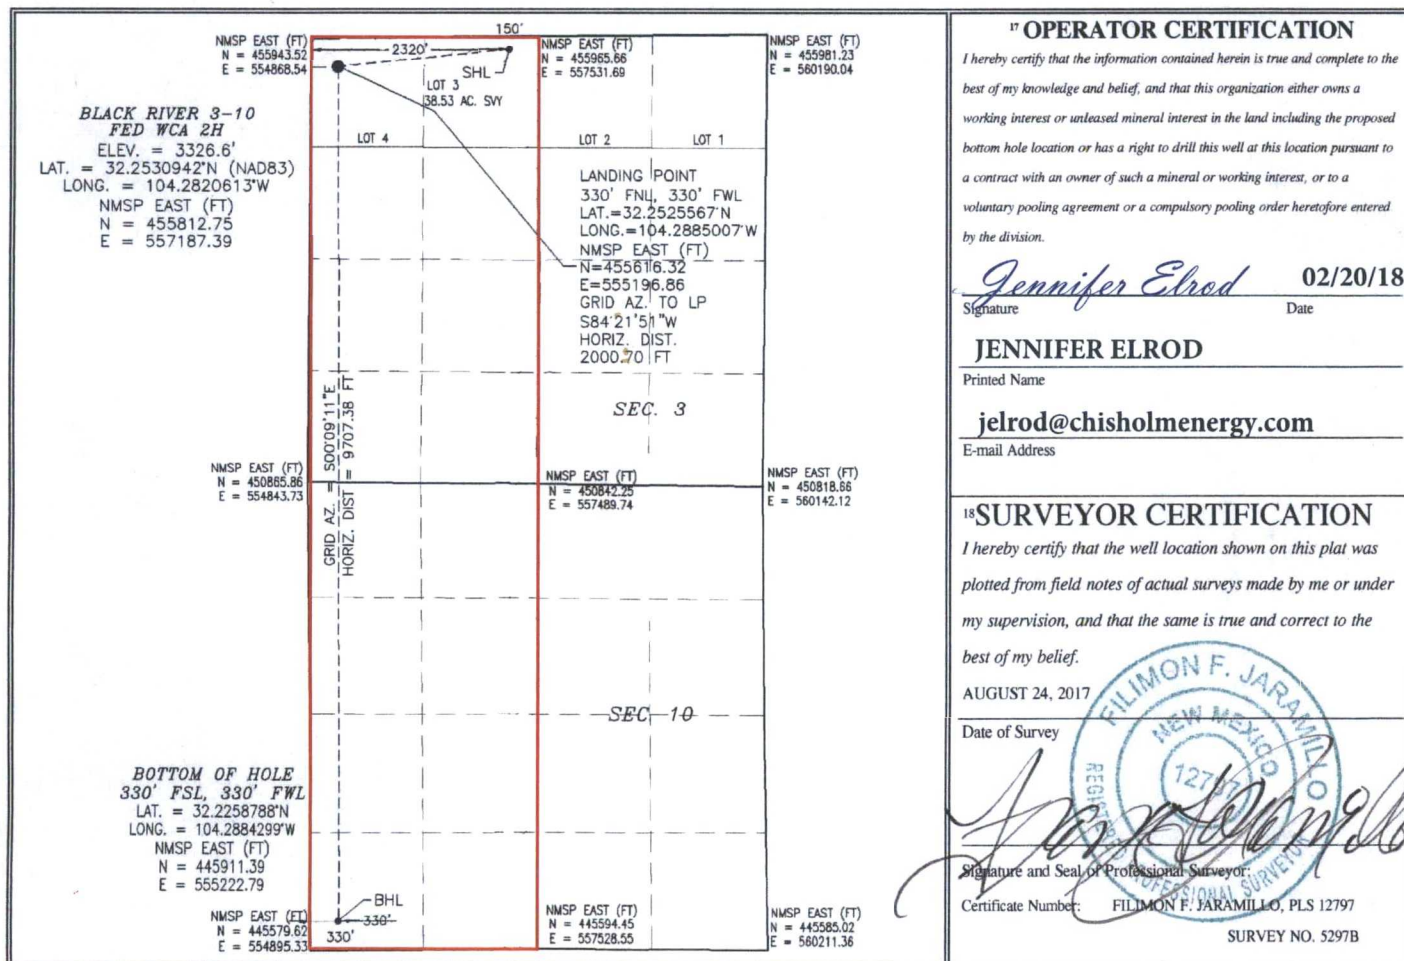 150'
NMSP EAST (FT)
N = 455943.52
E = 554868.54
2320'
SHL
LOT 3
38.53 AC. SVY
NMSP EAST (FT)
N = 455965.66
E = 557531.69
NMSP EAST (FT)
N = 455981.23
E = 560190.04
BLACK RIVER 3-10
FED WCA 2H
ELEV. = 3326.6'
LAT. = 32.2530942°N (NAD83)
LONG. = 104.2820613°W
NMSP EAST (FT)
N = 455812.75
E = 557187.39
LOT 4
LOT 2
LOT 1
LANDING POINT
330' FNL, 330' FWL
LAT.=32.2525567°N
LONG.=104.2885007°W
NMSP EAST (FT)
N=455616.32
E=555196.86
GRID AZ. TO LP
S84°21'51"W
HORIZ. DIST.
2000.70 FT
SEC. 3
GRID AZ. = S00°09'11"E
HORIZ. DIST = 9707.38 FT
NMSP EAST (FT)
N = 450865.86
E = 554843.73
NMSP EAST (FT)
N = 450842.25
E = 557489.74
NMSP EAST (FT)
N = 450818.66
E = 560142.12
SEC 10
BOTTOM OF HOLE
330' FSL, 330' FWL
LAT. = 32.2258788°N
LONG. = 104.2884299°W
NMSP EAST (FT)
N = 445911.39
E = 555222.79
BHL
330'
330'
NMSP EAST (FT)
N = 445579.62
E = 554895.33
NMSP EAST (FT)
N = 445594.45
E = 557528.55
NMSP EAST (FT)
N = 445585.02
E = 560211.36
17 OPERATOR CERTIFICATION
I hereby certify that the information contained herein is true and complete to the
best of my knowledge and belief, and that this organization either owns a
working interest or unleased mineral interest in the land including the proposed
bottom hole location or has a right to drill this well at this location pursuant to
a contract with an owner of such a mineral or working interest, or to a
voluntary pooling agreement or a compulsory pooling order heretofore entered
by the division.
Jennifer Elrod 02/20/18
Signature Date
JENNIFER ELROD
Printed Name
jelrod@chisholmenergy.com
E-mail Address
18 SURVEYOR CERTIFICATION
I hereby certify that the well location shown on this plat was
plotted from field notes of actual surveys made by me or under
my supervision, and that the same is true and correct to the
best of my belief.
AUGUST 24, 2017
Date of Survey
FILIMON F. JARAMILLO
NEW MEXICO
12797
REGISTERED PROFESSIONAL SURVEYOR
Signature and Seal of Professional Surveyor:
Certificate Number: FILIMON F. JARAMILLO, PLS 12797
SURVEY NO. 5297B